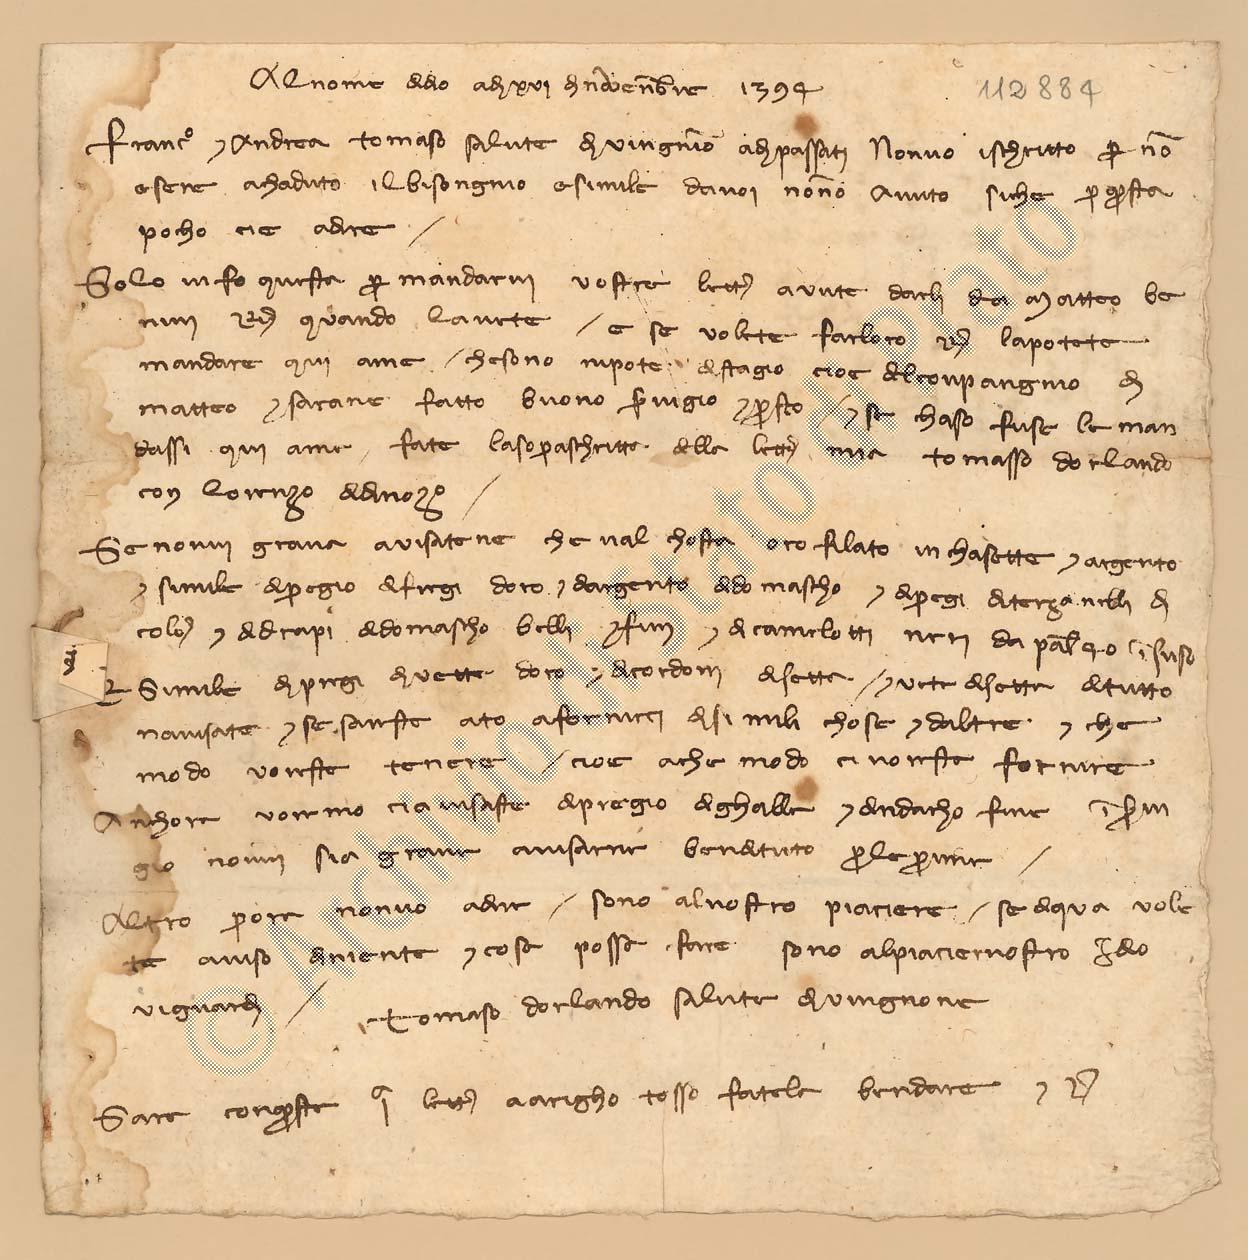 Al nome ddo adì xvi di novenbre 1394
112884
Franc.o e Andrea Tomaso salute di Vingnio a dì passati nonvo ischritto per nō
esere achaduto il bisongnio e simile da voi nōnò auuto siche per questa
pocho cie a dire /
Solo vi fo questa per mandarvi vostre lett. avute da li di Matteo be
nini quando l'avete / e se volete far loro r. la potete
mandare qui a me / che sono nipote di Stagio cioe del conpangnio di
Matteo e sarane fatto buono servigio e presto / e se chaso fuse le man
dassi qui a me / fate la sopraschritta della lett. mia Tomasso d'Orlando
con Lorenzo di Dinozo /
Se nonvi grava avisatene che val chosta oro filato in chasette e argento
e simile di pregio di fregi d'oro e d'argento di domascho e di pregi di terzanelli di
colo. e di drapi di domascho belli e fini e di camelotti neri da pal. 40 in suso
E simile di pregi di vette d'oro e di cordoni di seta / e vete di seta di tutto
n'avisate e se sareste ato a fornirci di simili chose e d'altre e che
modo voreste tenere / cioe a che modo ci voreste fornire
Anchora voremo ci avisaste di pregio di ghalle e d'indacho fine in servi
gio nonvi sia grave avisarne ben di tuto per le prime /
Altro per ora nonvo a dire / sono al vostro piaciere / se di qua vole
te aviso di niente e cosa possa fare sono al piacier vostro Idio
vi guardi / Tomaso d'Orlando salute di Vingnone
Sara con questa 1a lett. a Arigho Tosso fatela ben dare e r.
© Archivio di Stato di Prato